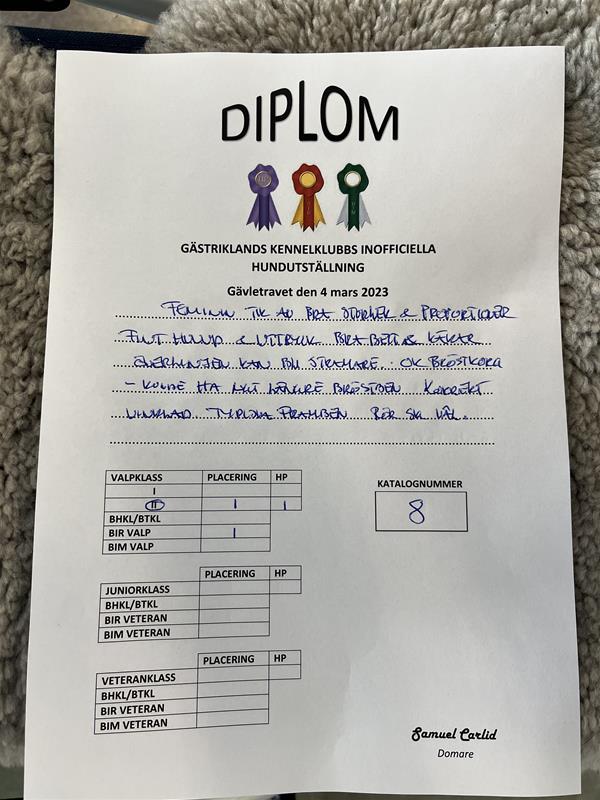 DIPLOM
GÄSTRIKLANDS KENNELKLUBBS INOFFICIELLA
HUNDUTSTÄLLNING
Gävletravet den 4 mars 2023
FEMININ TIK AV BRA STORLEK & PROPORTIONER
FINT HUVUD & UTTRYCK BRA BETT & KÄKAR
ÖVERLINJEN KAN BLI STRAMARE. OK BRÖSTKORG
- KUNDE HA LÄNGRE BRÖSTBEN KORREKT
VINKLAD FRAMBEN RÖR SIG VÄL.
VALPKLASS PLACERING HP
I
II 1 1
BHKL/BTKL
BIR VALP 1
BIM VALP
KATALOGNUMMER
8
PLACERING HP
JUNIORKLASS
BHKL/BTKL
BIR VETERAN
BIM VETERAN
PLACERING HP
VETERANKLASS
BHKL/BTKL
BIR VETERAN
BIM VETERAN
Samuel Carlid
Domare